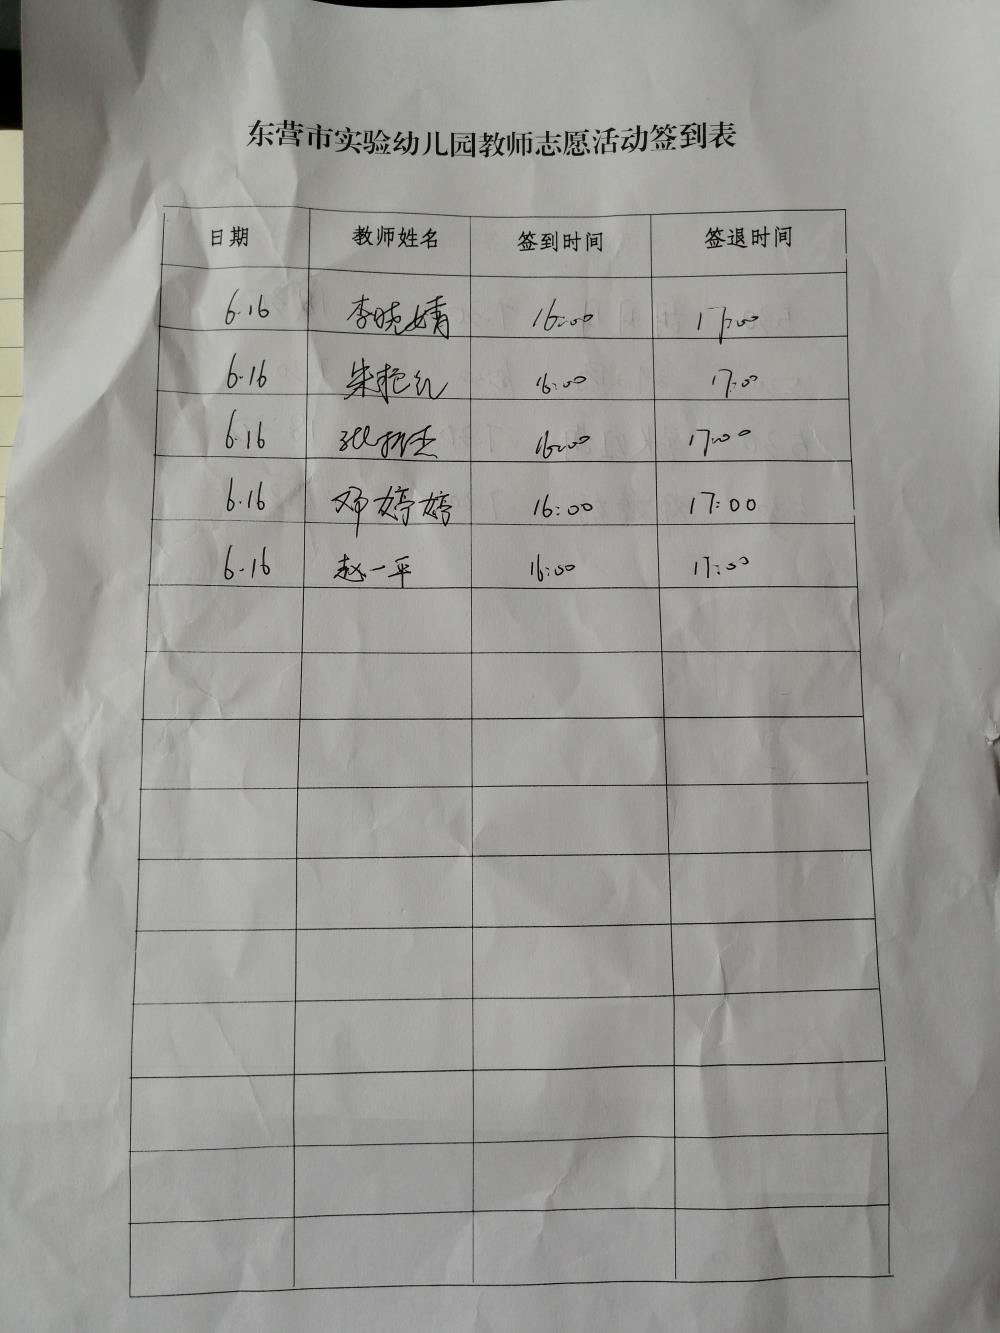 东营市实验幼儿园教师志愿活动签到表
日期 教师姓名 签到时间 签退时间
6.16 李晓婧 16:00 17:00
6.16 朱艳红 16:00 17:00
6.16 张 杰 16:00 17:00
6.16 邓婷婷 16:00 17:00
6.16 赵一平 16:00 17:00